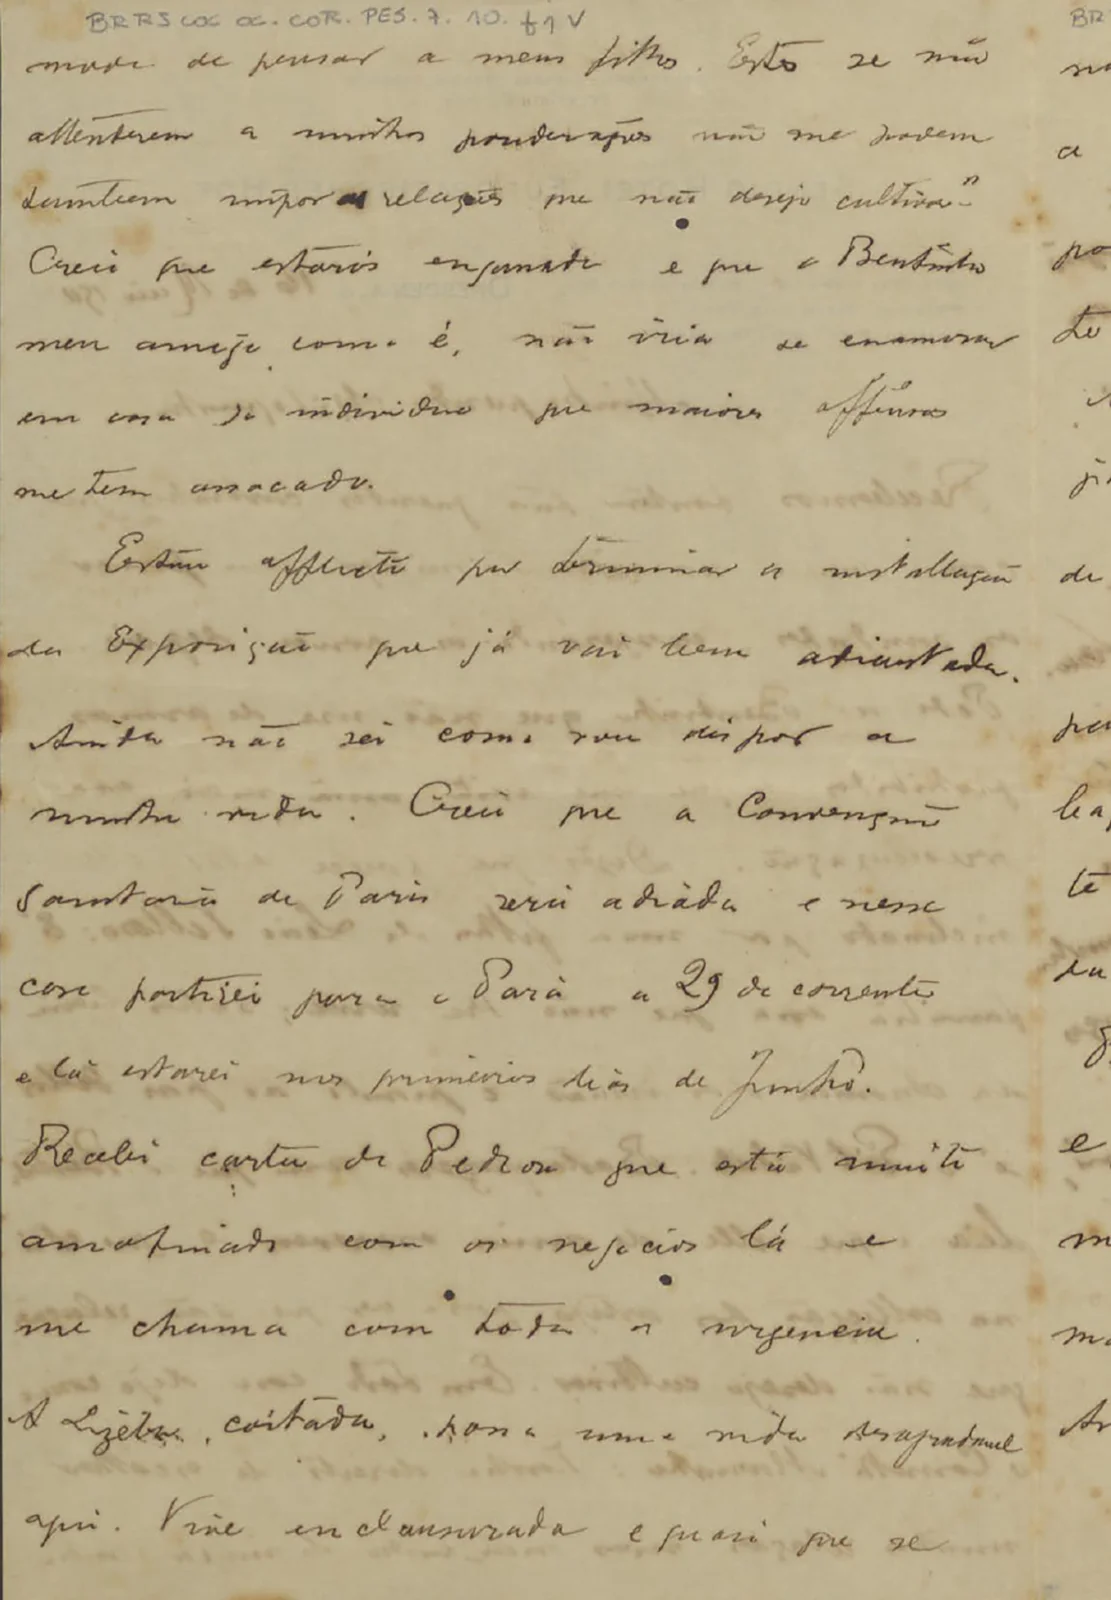 BRRSCOC OC. COR. PES. 7. 10. f1V
modo de pensar a meus filhos. Estes se não
attenderem a minhas ponderações não me podem
tambem impor as relações que não desejo cultivar"
Creio que estarás enganado e que o Bentinho
meu amigo como é, não iria se enamorar
em casa do individuo que maiores offensas
me tem assacado.
Estou afflicto por terminar a installação
da Exposição que já vai bem adiantada.
Ainda não sei como vou dispor a
minha vida. Creio que a Convenção
Sanitaria de Paris será adiada e nesse
caso partirei para o Pará a 29 do corrente
e lá estarei nos primeiros dias de Junho.
Recebi carta do Pedroso que está muito
amofinado com os negocios lá e
me chama com toda a urgencia.
A coitada, passa uma vida desagradavel
aqui. Vive enclausurada e quasi que se